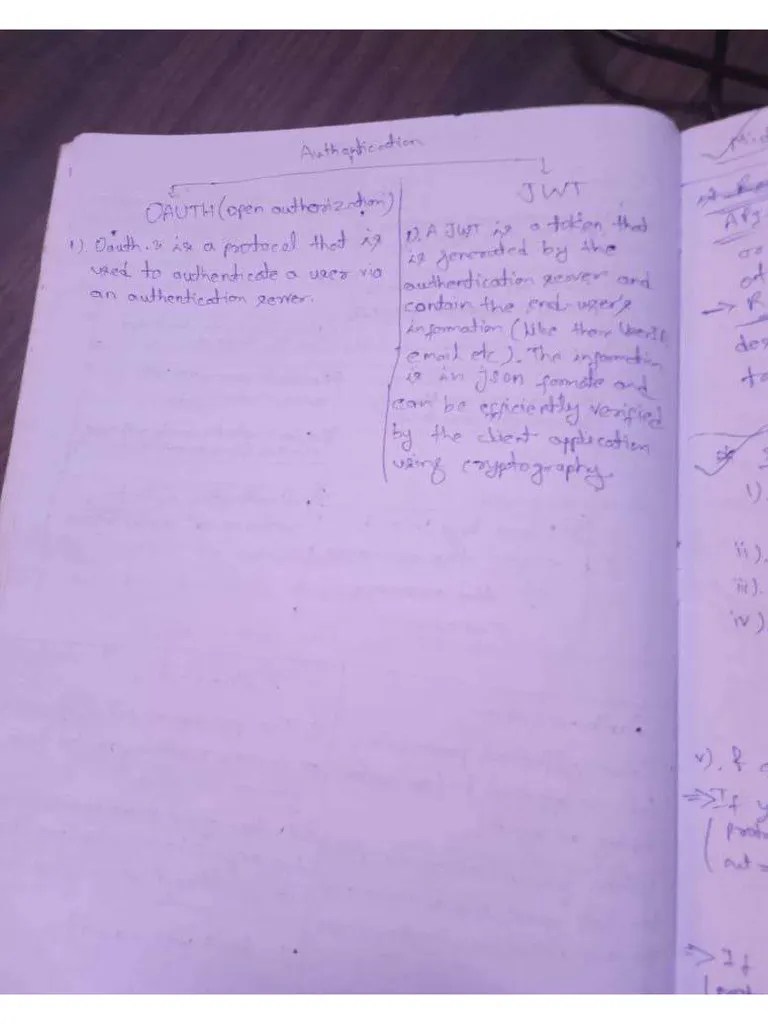 Authentication
OAUTH (open authorization)
1). Oauth.2 is a protocol that is
used to authenticate a user via
an authentication server.
JWT
1). A JWT is a token that
is generated by the
authentication server and
contain the end-user's
information (like their
email etc). The information
is in json formate and
can be efficiently verified
by the client application
using cryptography.
→ R
des
to
1).
ii).
iii).
iv)
v).
⇒ If y
⇒ If